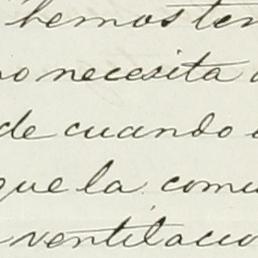 hemos ten
no necesita
de cuando
que la comu
ventilacio